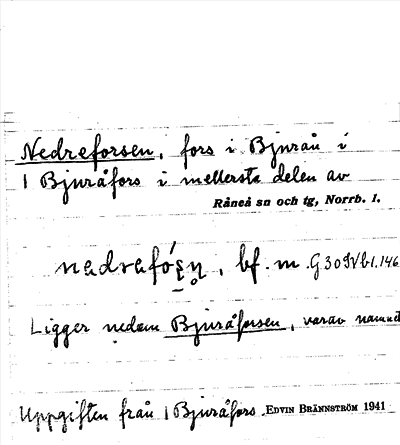 Nedreforsen, fors i Bjuraå i
1 Bjuråfors i mellersta delen av
Råneå sn och tg, Norrb. l.
nedrefó̱ṣṇ, bf. m. G30 Nb1.146
Ligger nedom Bjuråforsen, varav namnet
Uppgiften från 1 Bjuråfors. EDVIN BRÄNNSTRÖM 1941